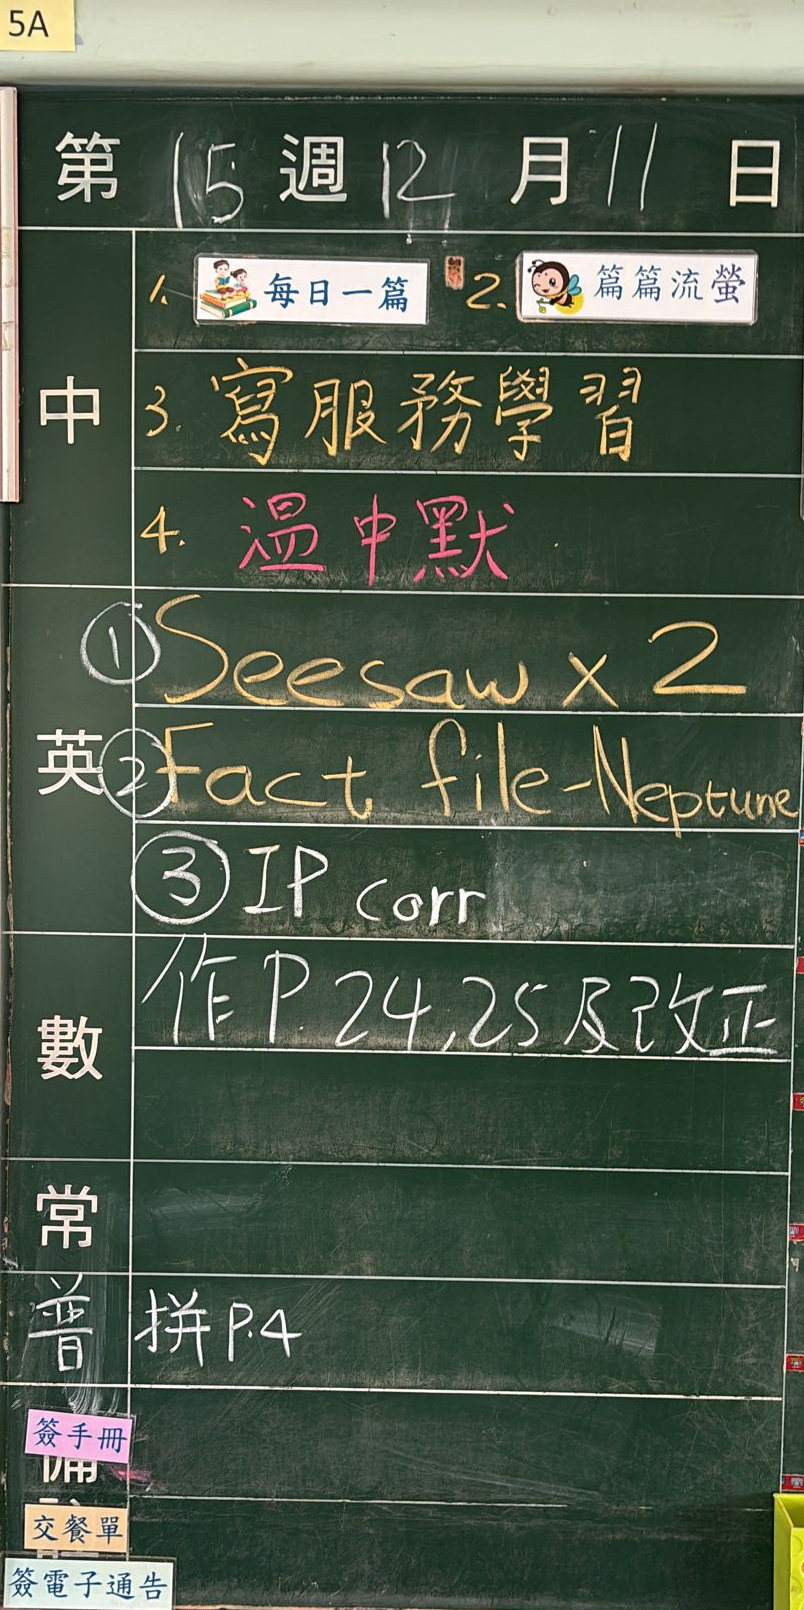 5A
第 15 週 12 月 11 日
中
1. 每日一篇 2. 篇篇流螢
3. 寫服務學習
4. 溫中默
英
① Seesaw x 2
② Fact file-Neptune
③ IP corr
數
作 P. 24,25 及改正
常
普 拼 P.4
簽手冊
備
交餐單
簽電子通告